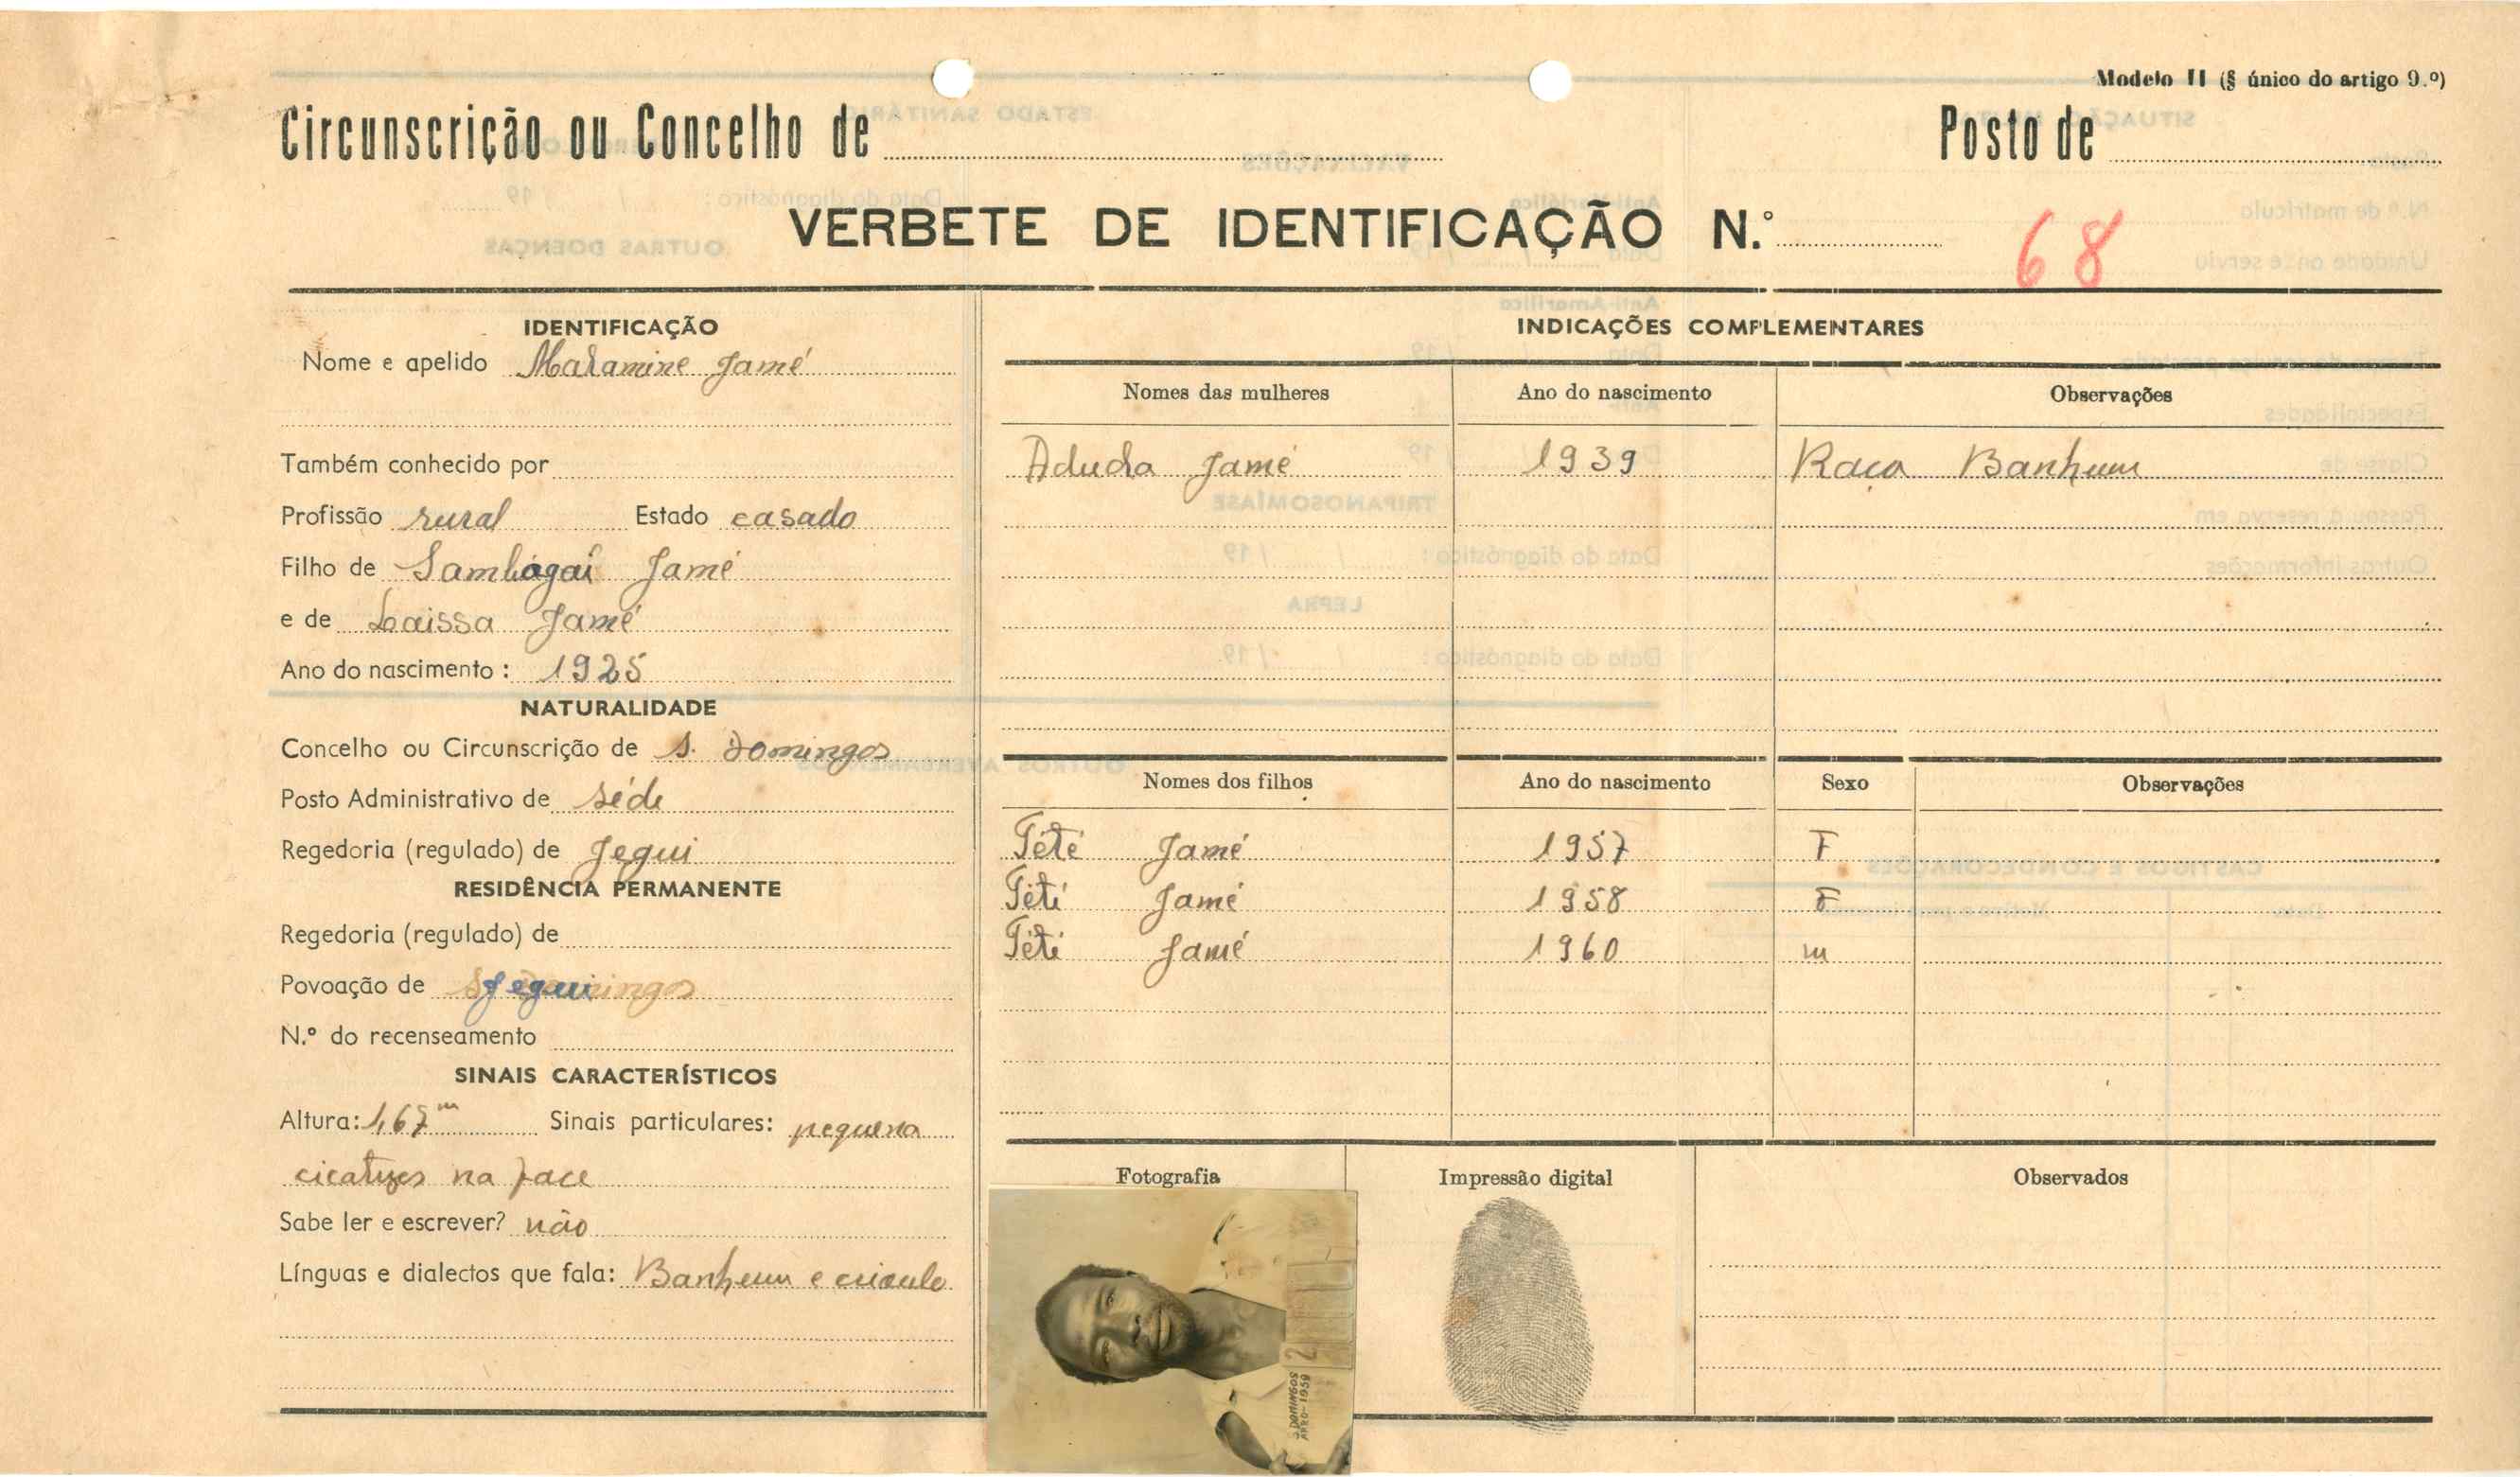 Modelo II (§ único do artigo 9.º)
Circunscrição ou Concelho de Posto de
VERBETE DE IDENTIFICAÇÃO N.º 68
IDENTIFICAÇÃO
Nome e apelido Malamine Jamé
Também conhecido por
Profissão rural Estado casado
Filho de Sambagai Jamé
e de Laissa Jamé
Ano do nascimento : 1925
NATURALIDADE
Concelho ou Circunscrição de S. Domingos
Posto Administrativo de séde
Regedoria (regulado) de Jegui
RESIDÊNCIA PERMANENTE
Regedoria (regulado) de
Povoação de Jegui
N.º do recenseamento
SINAIS CARACTERÍSTICOS
Altura: 1,67m Sinais particulares: pequena
cicatrizes na face
Sabe ler e escrever? não
Línguas e dialectos que fala: Banhum e crioulo
INDICAÇÕES COMPLEMENTARES
Nomes das mulheres Ano do nascimento Observações
Jamé 1939 Raça Banhum
Nomes dos filhos Ano do nascimento Sexo Observações
Tété Jamé 1957 F
Téti Jamé 1958 F
Téti Jamé 1960 m
Fotografia Impressão digital Observados
2
S. DOMINGOS
1959